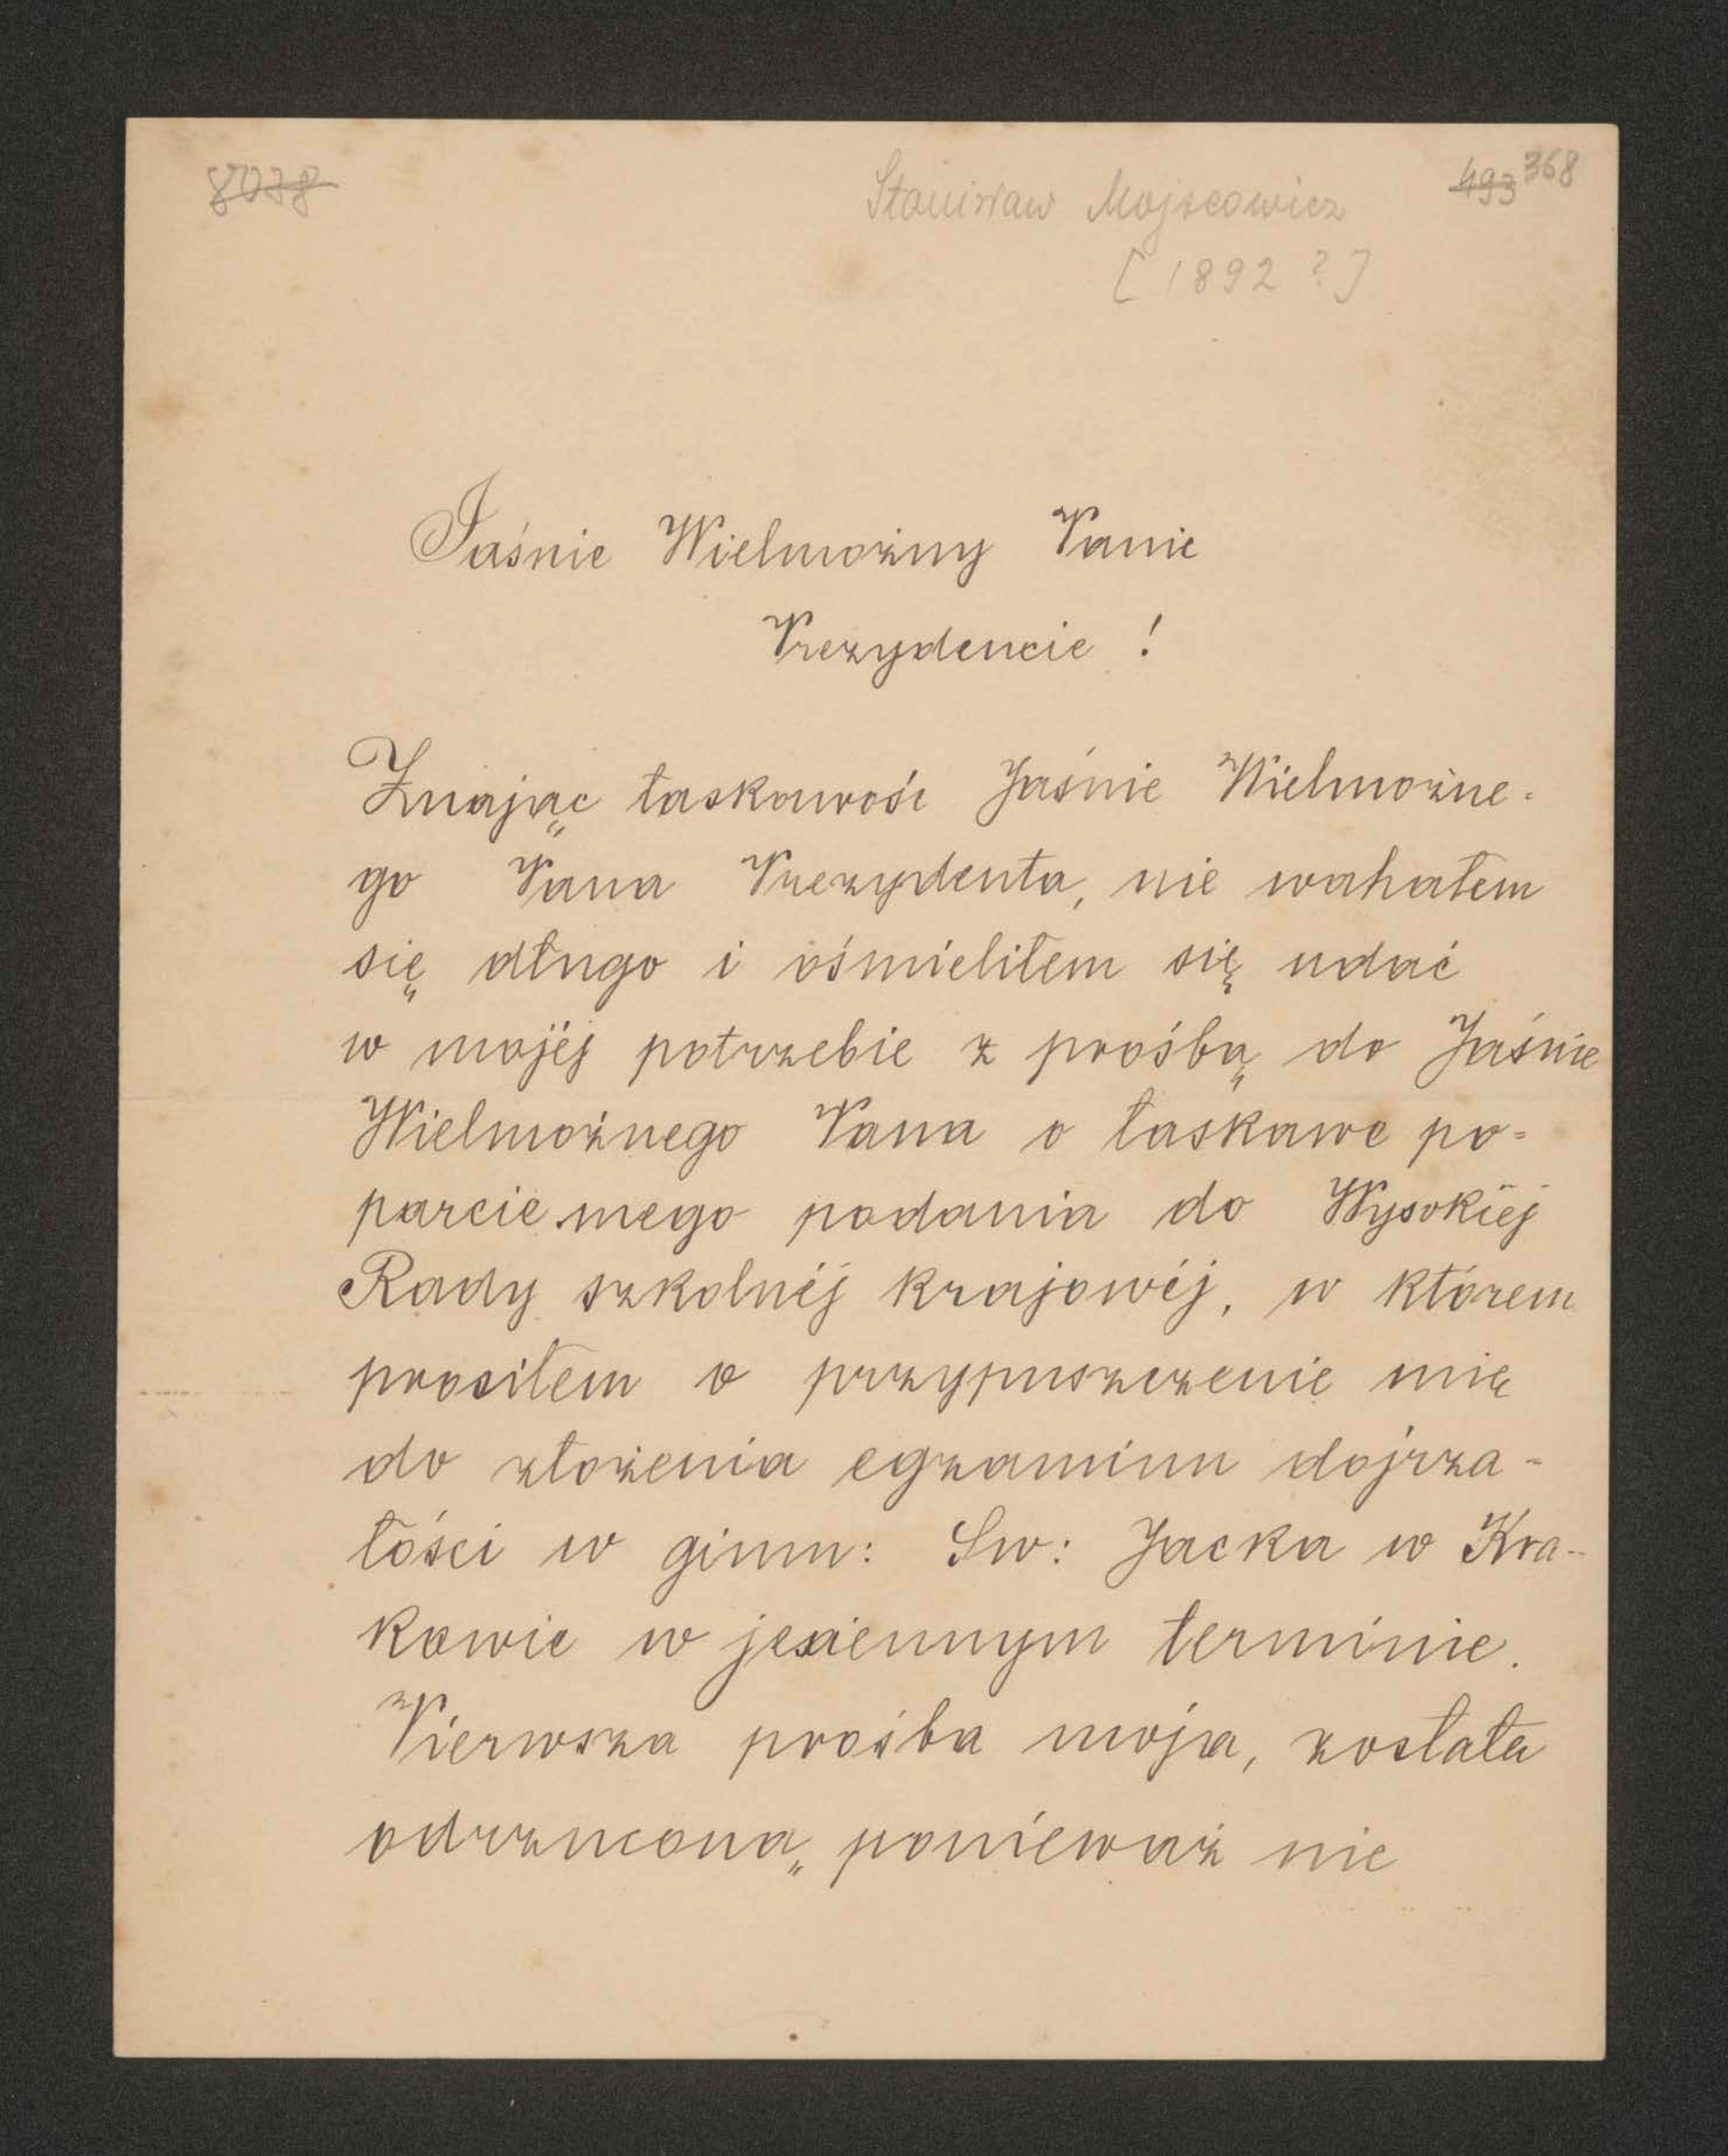 8038
Stanisław Mojseowicz
493 368
[1892?]
Jaśnie Wielmożny Panie
Prezydencie !
Znając łaskawość Jaśnie Wielmożne-
go Pana Prezydenta, nie wahałem
się długo i ośmieliłem się udać
w mojéj potrzebie z prośbą do Jaśnie
Wielmożnego Pana o łaskawe po-
parcie mego podania do Wysokiéj
Rady szkolnéj krajowéj, w którem
prosiłem o przypuszczenie mię
do złożenia egzaminu dojrza-
łości w gimn: Św: Jacka w Kra-
kowie w jesiennym terminie.
Pierwsza prośba moja, została
odrzuconą, ponieważ nie